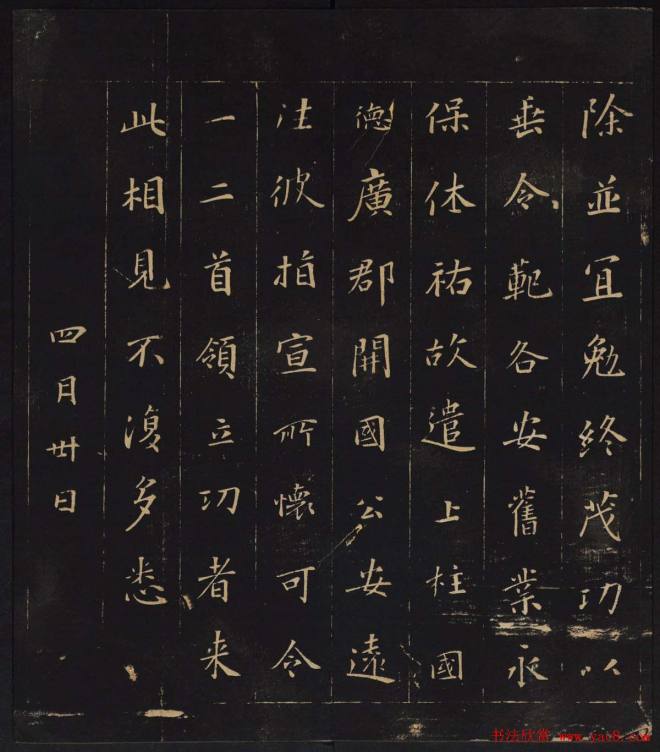 除並宜勉終茂功以
垂令範各安舊業永
保休祐故遣上柱國
德廣郡開國公安遠
往彼指宣所懷可令
一二首領立功者来
此相見不復多悉
四月卅日
书法欣赏 www.yac8.com